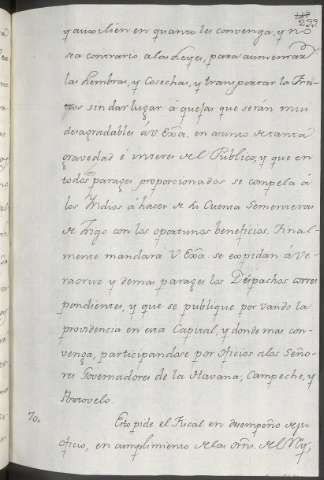 233
y auxilien en quanto les convenga, y no
sea contrario a las Leyes, para aumentar
las siembras, y Cosechas, y transportar las Tri-
gos sin dar lugar á quejas que serán mui
desagradables á V Exa. en asunto de tanta
gravedad é interes del Publico, y que en
todos parages proporcionados se compela á
los Yndios á hacer de su Cuenta Sementeras
de trigo con los oportunos beneficios. Final-
mente mandara V Exa. se expidan á Ve-
racruz y demas parages los Despachos corres
pondientes, y que se publique por vando la
providencia en esta Capital, y donde mas con-
venga, participandose por oficios a los Seño-
res Governadores de la Havana, Campeche, y
Portovelo.
70. Esto pide el Fiscal en desempeño de su
oficio, en cumplimiento de las orns. del Rey,